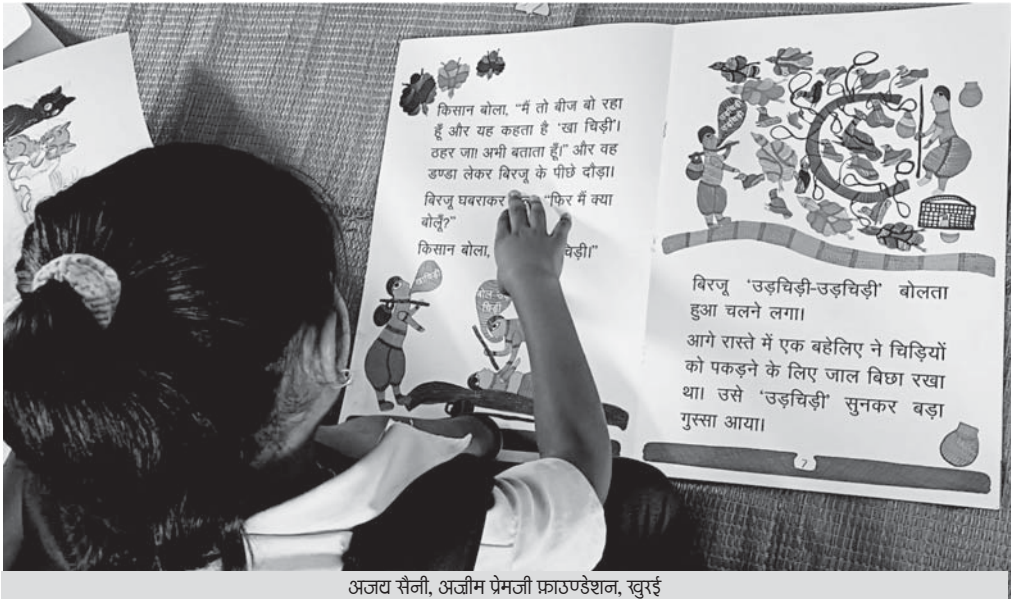 किसान बोला, "मैं तो बीज बो रहा
हूँ और यह कहता है 'खा चिड़ी'।
ठहर जा! अभी बताता हूँ।" और वह
डण्डा लेकर बिरजू के पीछे दौड़ा।
बिरजू घबराकर "फिर मैं क्या
बोलूँ?"
किसान बोला, चिड़ी।"
बिरजू 'उड़चिड़ी-उड़चिड़ी' बोलता
हुआ चलने लगा।
आगे रास्ते में एक बहेलिए ने चिड़ियों
को पकड़ने के लिए जाल बिछा रखा
था। उसे 'उड़चिड़ी' सुनकर बड़ा
गुस्सा आया।
7
अजय सैनी, अज़ीम प्रेमजी फ़ाउण्डेशन, खुरई